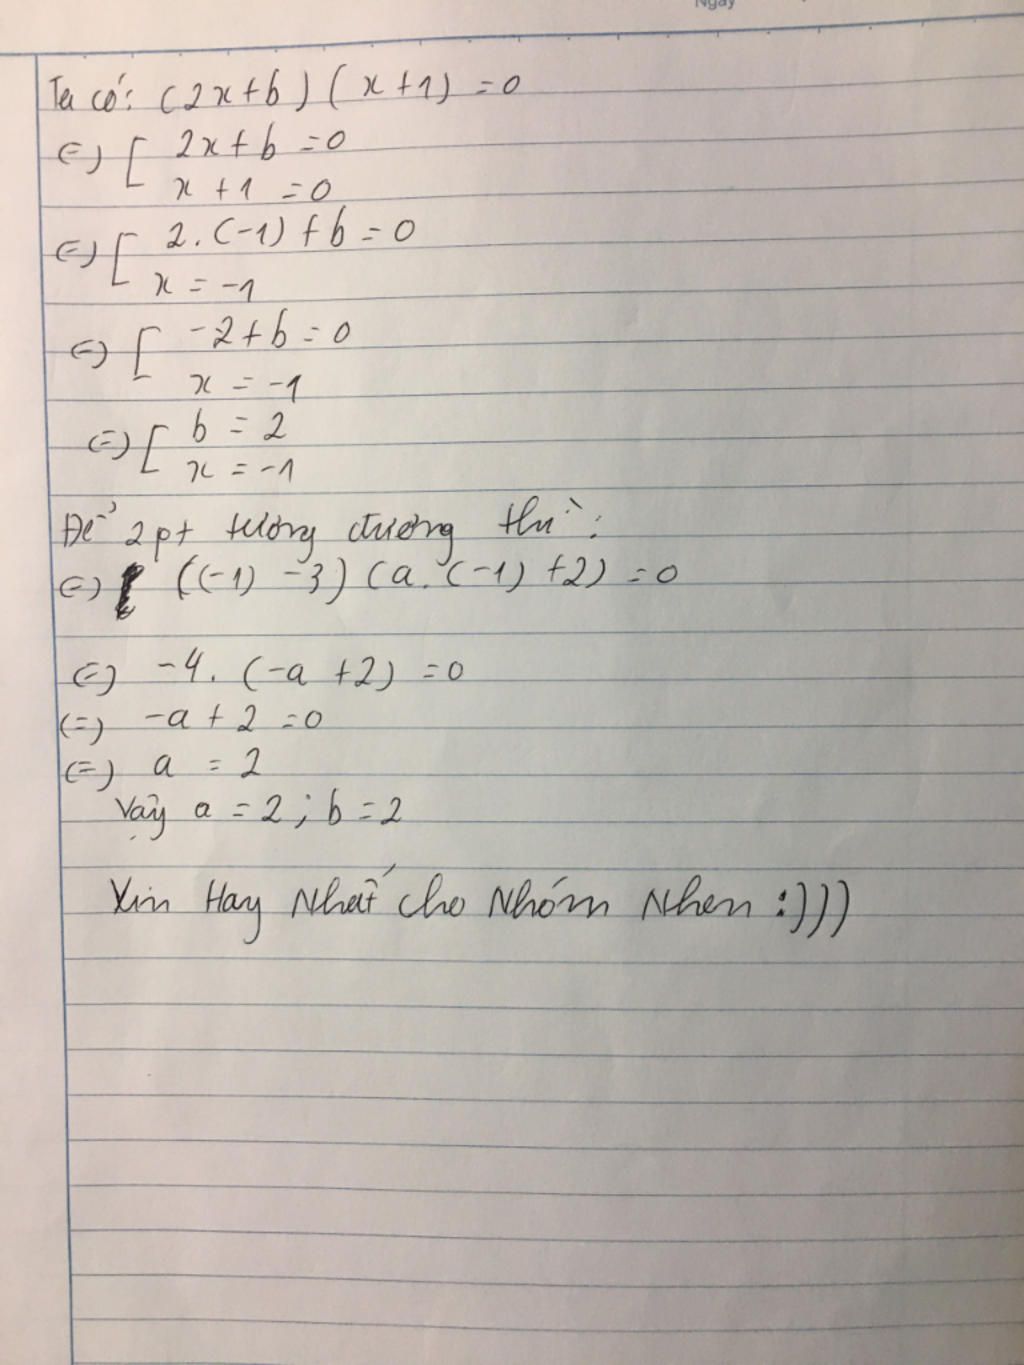 Ngày
Ta có: (2x+b)(x+1)=0
(=) [ 2x+b=0
x+1=0
(=) [ 2.(-1)+b=0
x=-1
(=) [ -2+b=0
x=-1
(=) [ b=2
x=-1
Để 2pt tương đương thì:
(=) ((-1)-3)(a.(-1)+2)=0
(=) -4.(-a+2)=0
(=) -a+2=0
(=) a=2
Vậy a=2; b=2
Xin Hay Nhất cho Nhóm Nhen :)))